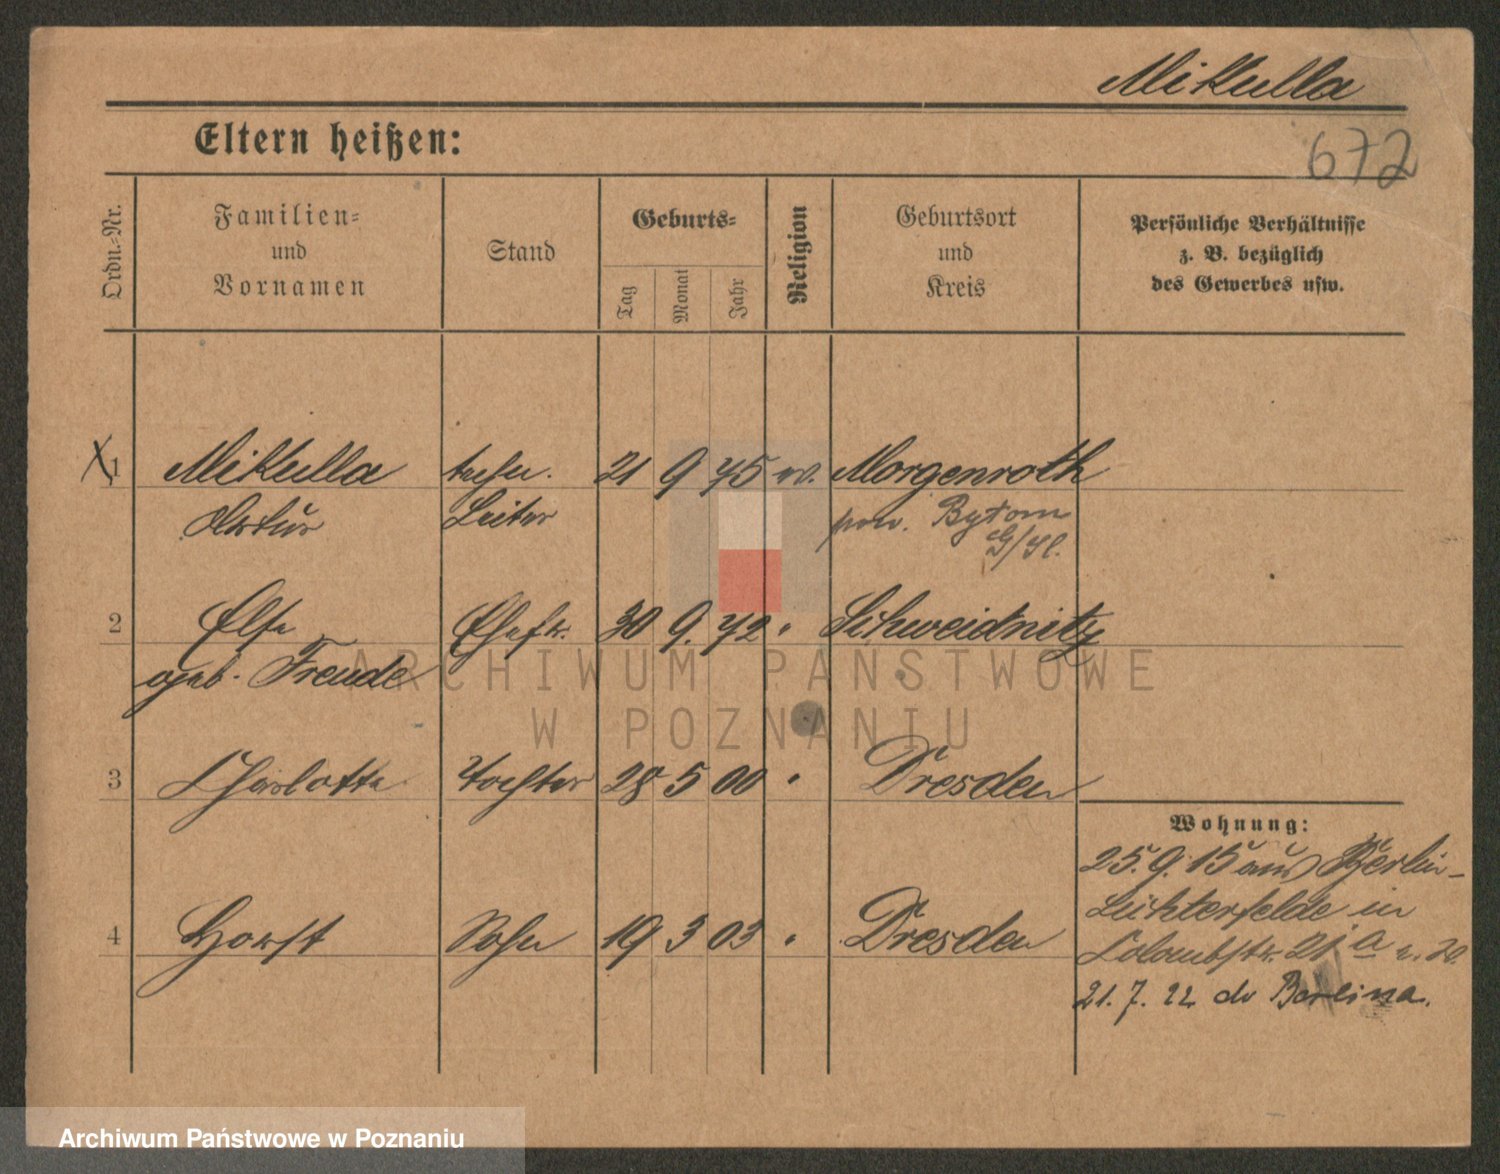 Mikulla
672
Eltern heißen:
Ordn.-Nr.
Familien- und Vornamen
Stand
Geburts-
Tag
Monat
Jahr
Religion
Geburtsort und Kreis
Persönliche Verhältnisse
z. B. bezüglich
des Gewerbes usw.
1 Mikulla techn. 21 9 75 ev. Morgenroth
Artur Leiter pow. Bytom
G/Sl.
2 Else Ehefr. 30 9. 72 " Schweidnitz
geb. Freude
3 Charlotte Tochter 28 5 00 " Dresden
Wohnung:
25.9.15 aus Berlin-
Lichterfelde in
4 Horst Sohn 19 3 03 " Dresden
Colombstr. 21a
21.7.22 do Berlina.
ARCHIWUM PAŃSTWOWE
W POZNANIU
Archiwum Państwowe w Poznaniu